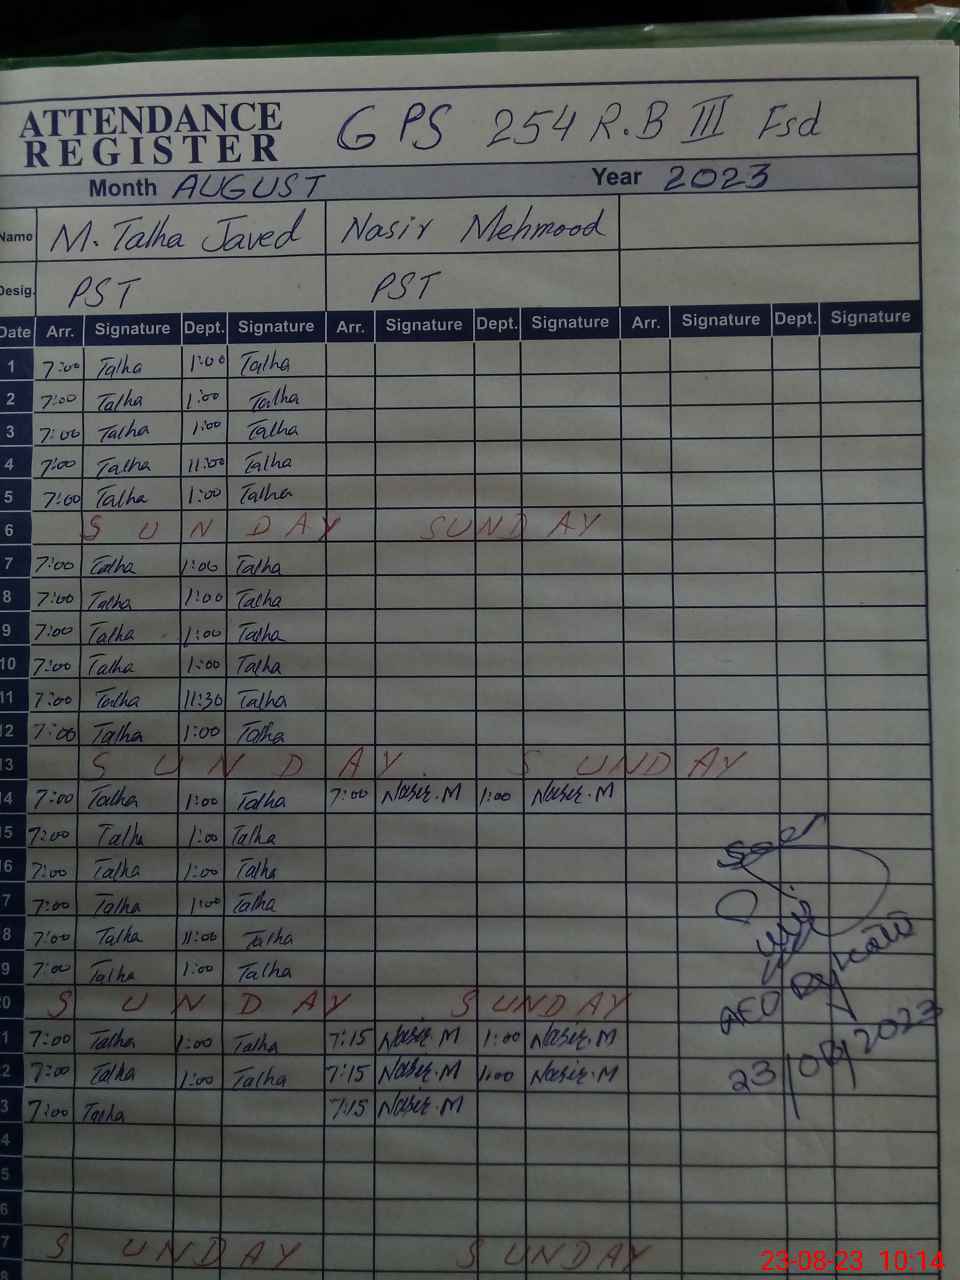 ATTENDANCE REGISTER GPS 254 R.B III Fsd
Month AUGUST Year 2023
Name M. Talha Javed Nasir Mehmood
Desig. PST PST
Date Arr. Signature Dept. Signature Arr. Signature Dept. Signature Arr. Signature Dept. Signature
1 7:00 Talha 1:00 Talha
2 7:00 Talha 1:00 Talha
3 7:00 Talha 1:00 Talha
4 7:00 Talha 11:00 Talha
5 7:00 Talha 1:00 Talha
6 SUNDAY SUNDAY
7 7:00 Talha 1:00 Talha
8 7:00 Talha 1:00 Talha
9 7:00 Talha 1:00 Talha
10 7:00 Talha 1:00 Talha
11 7:00 Talha 11:30 Talha
12 7:00 Talha 1:00 Talha
13 SUNDAY. SUNDAY
14 7:00 Talha 1:00 Talha 7:00 Nasir.M 1:00 Nasir.M
5 7:00 Talha 1:00 Talha
6 7:00 Talha 1:00 Talha
7 7:00 Talha 1:00 Talha
8 7:00 Talha 11:00 Talha
9 7:00 Talha 1:00 Talha
0 SUNDAY SUNDAY
1 7:00 Talha 1:00 Talha 7:15 Nasir.M 1:00 Nasir.M
2 7:00 Talha 1:00 Talha 7:15 Nasir.M 1:00 Nasir.M
3 7:00 Talha 7:15 Nasir.M
4
5
6
7 SUNDAY SUNDAY
8
Seen
AEO
23/08/2023
23-08-23 10:14